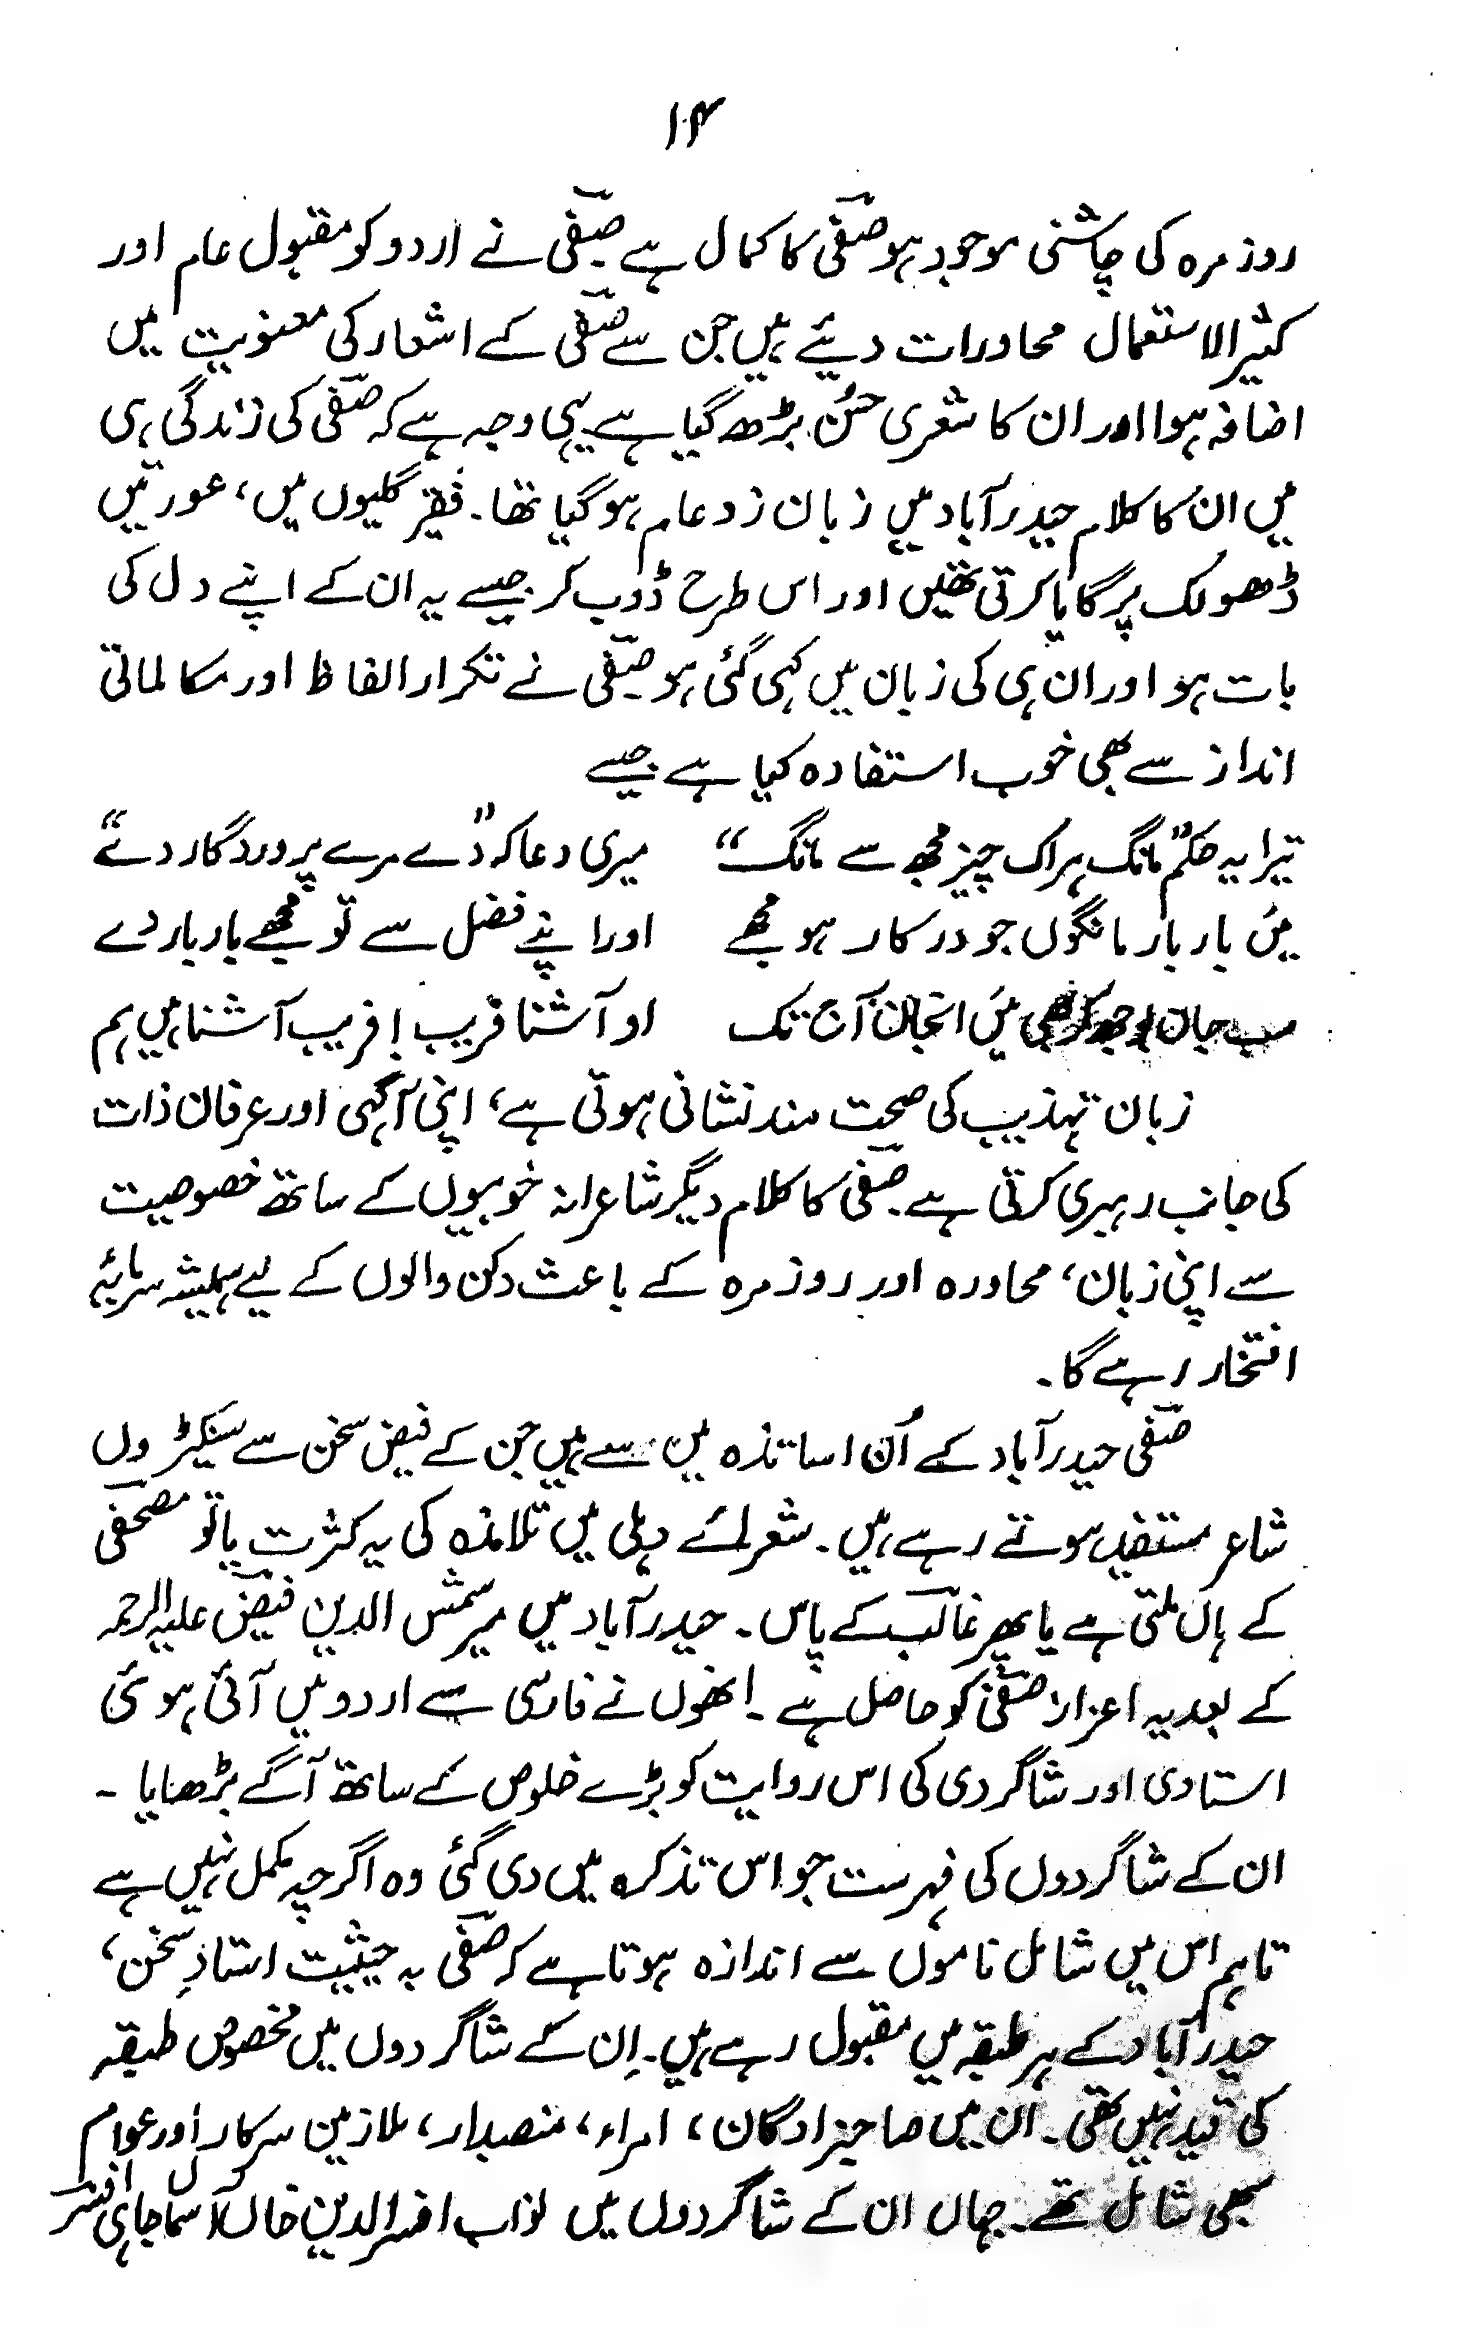 ۱۴
روز مرہ کی چاشنی موجود ہو صفؔی کا کمال ہے۔ صفؔی نے اردو کو مقبول عام اور
کثیر الاستعمال محاورات دیئے ہیں جن سے صفؔی کے اشعار کی معنویت میں
اضافہ ہوا اور ان کا شعری حسُن بڑھ گیا ہے۔ یہی وجہ ہے کہ صفؔی کی زندگی ہی
میں ان کا کلام حیدرآباد میں زبان زد عام ہو گیا تھا۔ فقیر گلیوں میں، عورتیں
ڈھولک پر گایا کرتی تھیں اور اس طرح ڈوب کر جیسے یہ ان کے اپنے دل کی
بات ہو اور ان ہی کی زبان میں کہی گئی ہو۔ صفؔی نے تکرار الفاظ اور مکالماتی
انداز سے بھی خوب استفادہ کیا ہے جیسے
تیرا یہ حکم "مانگ ہر اک چیز مجھ سے مانگ" میری دعا کہ "دے مرے پروردگار دے"
میں بار بار مانگوں جو درکار ہو مجھے اور اپنے فضل سے تو مجھے بار بار دے
سب جان بوجھ کر بھی میں انجان آج تک او آشنا فریب! فریب آشنا ہیں ہم
زبان تہذیب کی صحت مند نشانی ہوتی ہے، اپنی آگہی اور عرفان ذات
کی جانب رہبری کرتی ہے۔ صفؔی کا کلام دیگر شاعرانہ خوبیوں کے ساتھ خصوصیت
سے اپنی زبان، محاورہ اور روز مرہ کے باعث دکن والوں کے لیے ہمیشہ سرمایۂ
افتخار رہے گا۔
صفؔی حیدرآباد کے اُن اساتذہ میں سے ہیں جن کے فیض سخن سے سینکڑوں
شاعر مستفید ہوتے رہے ہیں۔ شعرائے دہلی میں تلامذہ کی یہ کثرت یا تو مصحفؔی
کے ہاں ملتی ہے یا پھر غالؔب کے پاس۔ حیدرآباد میں میر شمس الدین فیضؔ علیہ الرحمہ
کے بعد یہ اعزاز صفؔی کو حاصل ہے۔ انھوں نے فارسی سے اردو میں آئی ہوئی
استادی اور شاگردی کی اس روایت کو بڑے خلوص کے ساتھ آگے بڑھایا۔
ان کے شاگردوں کی فہرست جو اس تذکرہ میں دی گئی وہ اگرچہ مکمل نہیں ہے
تاہم اس میں شامل ناموں سے اندازہ ہوتا ہے کہ صفؔی بہ حیثیت استادِ سخن،
حیدرآباد کے ہر طبقہ میں مقبول رہے ہیں۔ اِن کے شاگردوں میں مخصوص طبقہ
کی قید نہیں تھی۔ ان میں صاحبزادگان، امراء، منصبدار، ملازمین سرکار اور عوام
سبھی شامل تھے۔ جہاں ان کے شاگردوں میں نواب افسر الدین خاں آسماجاہی افسر